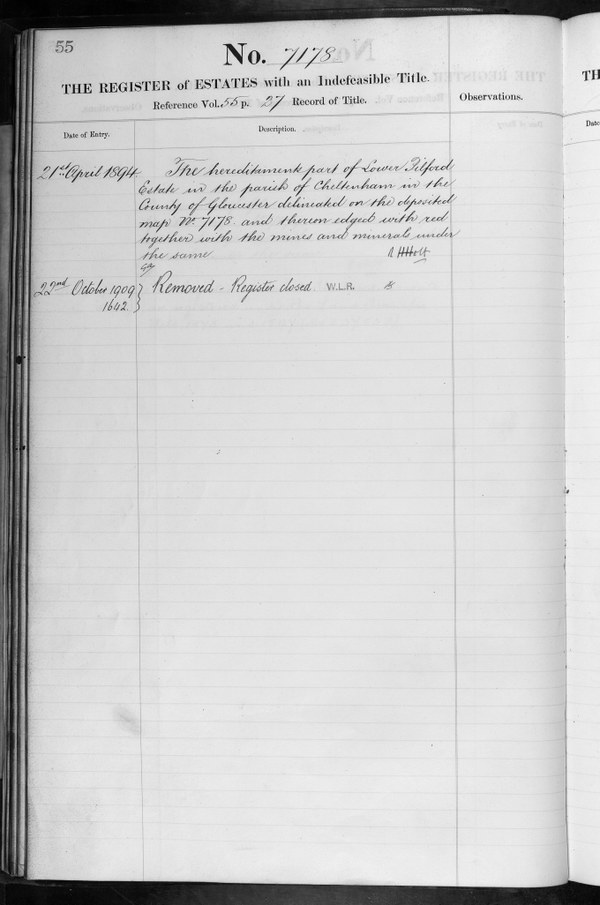 55
No. 7178
THE REGISTER of ESTATES with an Indefeasible Title.
Reference Vol. 55 p. 27 Record of Title.
Observations.
Date of Entry.
Description.
21st April 1894
The hereditament part of Lower Pilford
Estate in the parish of Cheltenham in the
County of Gloucester delineated on the deposited
map No. 7178 and thereon edged with red
together with the mines and minerals under
the same
22nd October 1909
1642
Removed - Register closed W.L.R.
TH
Date